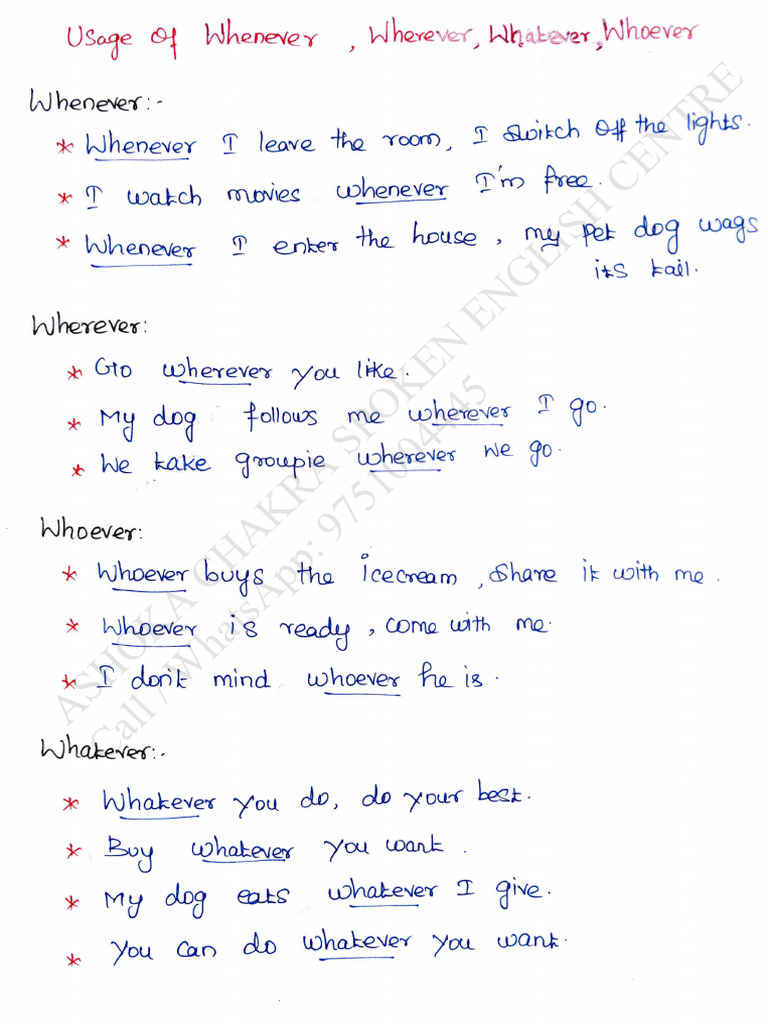 Usage Of Whenever , Wherever, Whatever, Whoever
Whenever:-
* Whenever I leave the room, I switch off the lights.
* I watch movies whenever I'm free.
* Whenever I enter the house, my pet dog wags
its tail.
Wherever:
* Go wherever you like.
* My dog follows me wherever I go.
* We take groupie wherever we go.
Whoever:
* Whoever buys the icecream, share it with me.
* Whoever is ready, come with me.
* I don't mind whoever he is.
Whatever:-
* Whatever you do, do your best.
* Buy whatever you want.
* My dog eats whatever I give.
* You can do whatever you want.
ASHOKA CHAKRA SPOKEN ENGLISH CENTRE
Call / WhatsApp: 9751604445